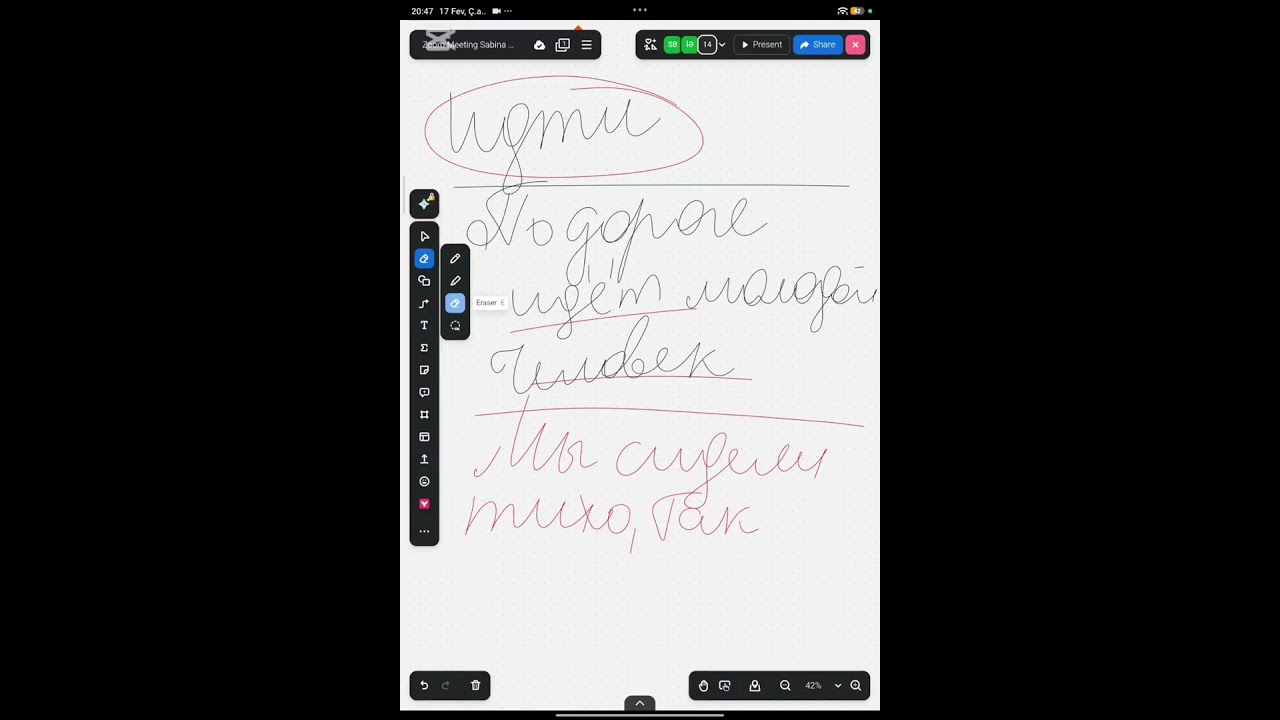 20:47 17 Fev, Ç.a.. ...
42
Zoom Meeting Sabina ...
1
SB
İə
14
Present
Share
идти
По дороге
идёт молодой
человек
Eraser E
Мы сидели
тихо, так
42%